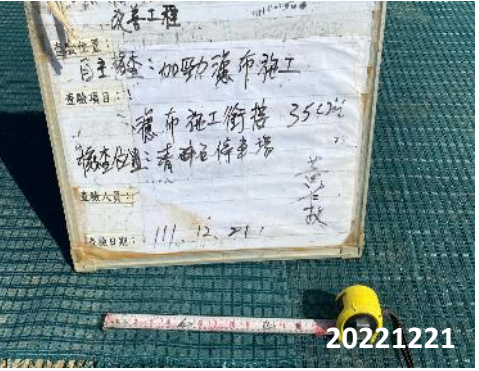 改善工程
查驗位置：
自主檢查：加勁濾布施工
查驗項目：
濾布施工銜接 35cm
檢查位置：青碑石停車場
查驗人員：
查驗日期：111.12.21.
20221221